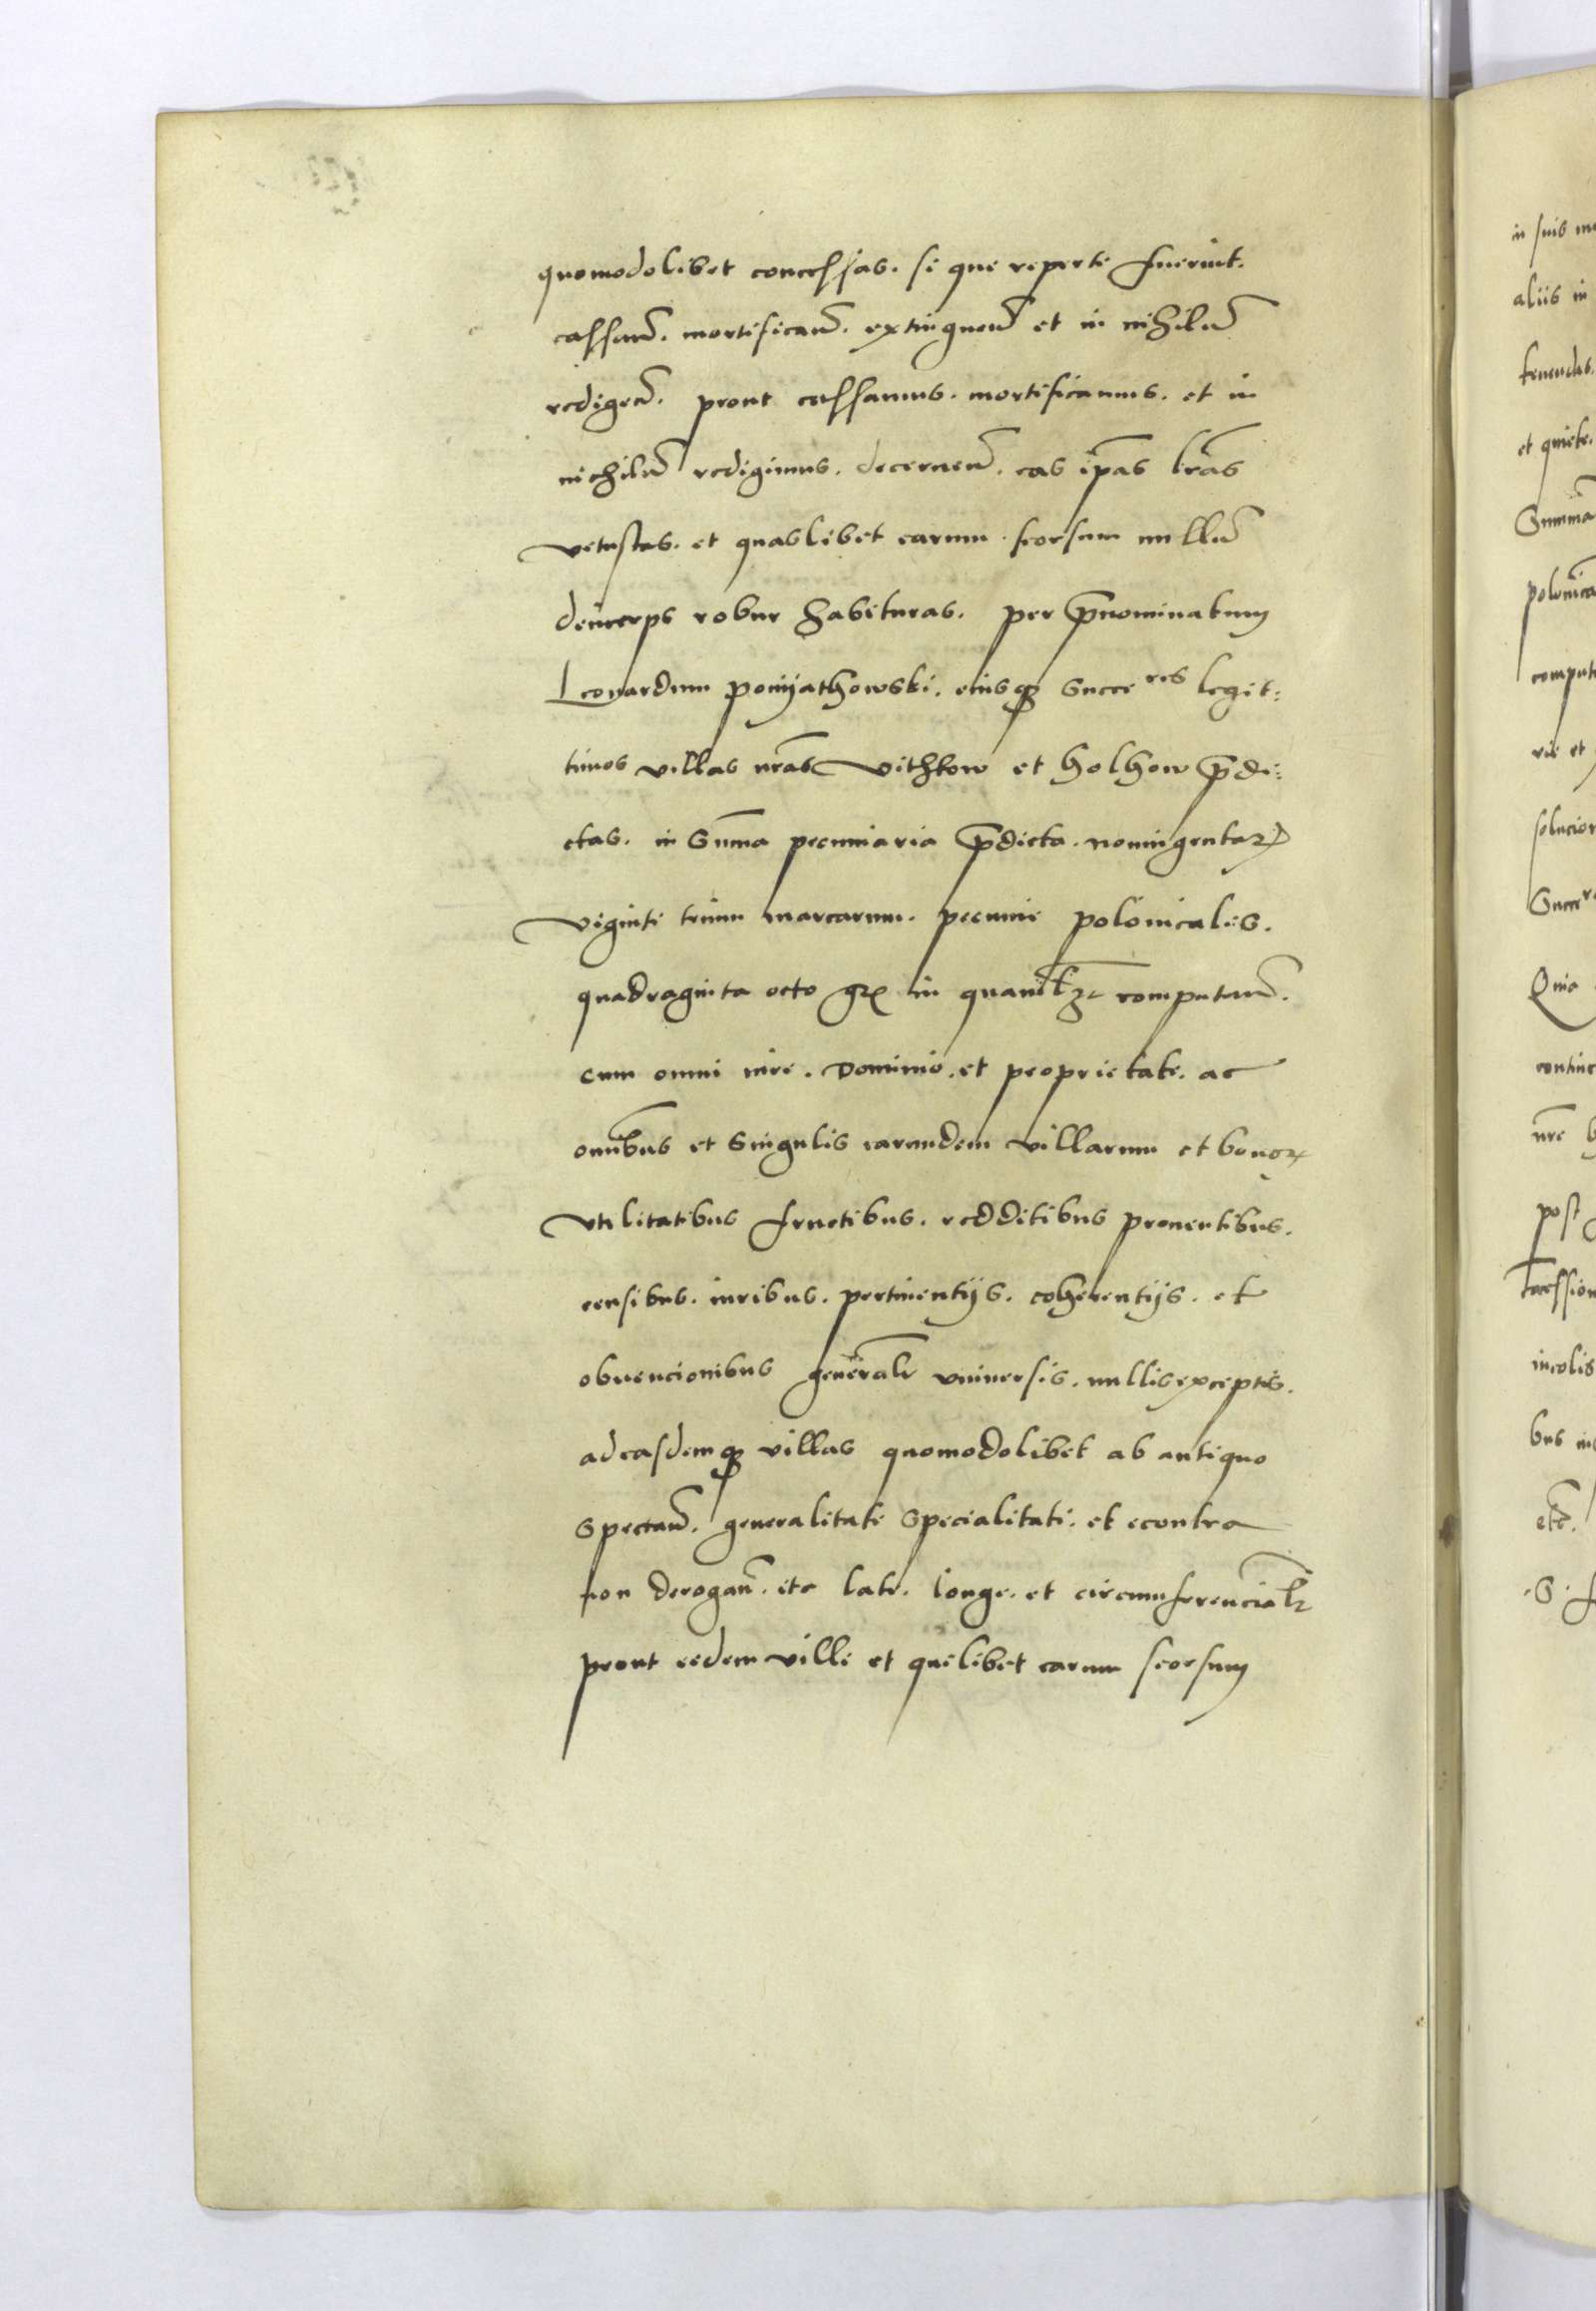 quomodolibet concessas. si que reperte fuerint.
cassan̄. mortifican̄. extinguen̄ et in nihilū
redigen̄. prout cassamus. mortificamus. et in
nichilū redigimus. decernen̄. eas ip̄as lr̄as
vetustas. et quaslibet earum seorsum nullū
deinceps robur habituras. per p̄nominatum
Leonardum ponijathowski. eiusq₃ succe^res legit:
timos villas nr̄as vithkow et holhow p̄di:
ctas. in sum̄a pecuniaria p̄dicta. noningentaꝝ
viginti trium marcarum. pecunie polonicales.
quadraginta octo gꝝ in quaml̄ꝫ computan̄.
cum omni iure. dominio. et proprietate. ac
omībus et singulis earundem villarum et bonoꝝ
vtilitatibus fructibus. redditibus prouentibus.
censibus. iuribus. pertinentijs. coherentijs. et
obuencionibus generalr̄ vniuersis. nullis exceptis.
ad easdemq₃ villas quomodolibet ab antiquo
spectan̄. generalitate specialitati. et econtra
non derogan̄. ita late. longe. et circumferencialr̄
prout eedem ville et quelibet earum seorsum
in suis
aliis in
tenendas.
et quiete.
Summa
polonica
comput
rie et
solucion
Succe
Quia
contine
nr̄e
post
incolis
bus
etc̄.